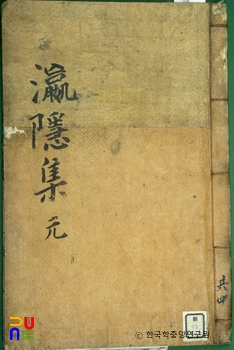 瀛隱集 元
共四
PUON
© 한국학중앙연구원